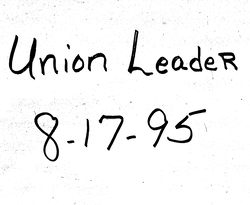 Union Leader
8-17-95